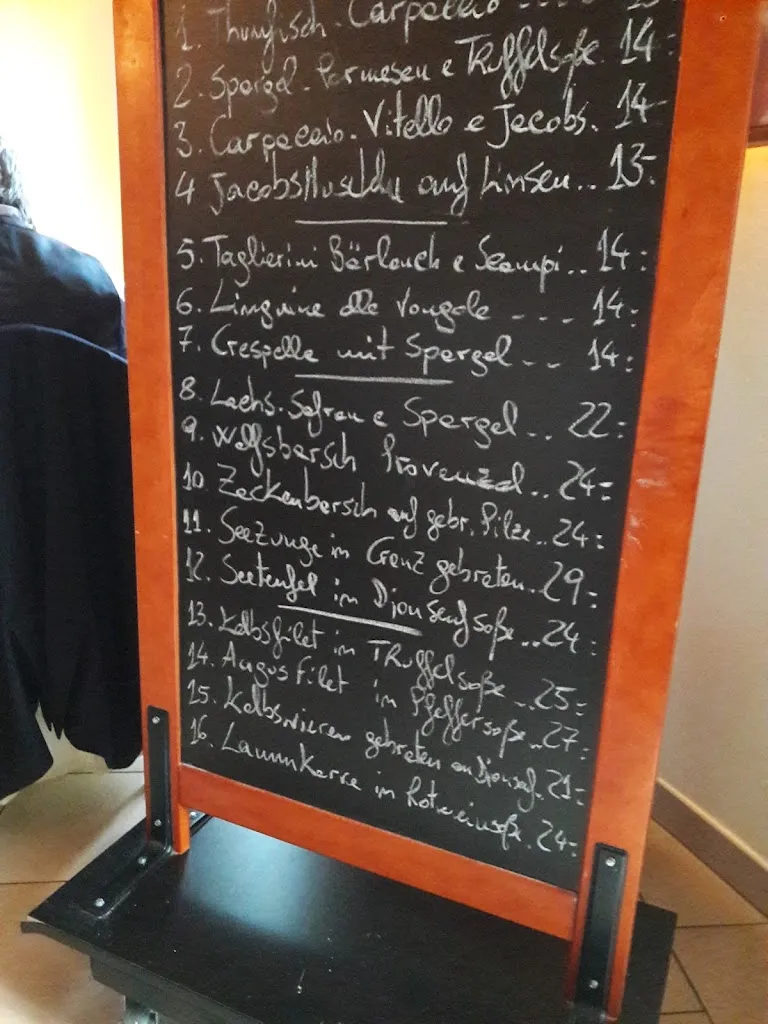 1. Thunfisch. Carpaccio ---- 13
2. Spargel. Parmesan e Trüffelsoße. 14-
3. Carpaccio. Vitello e Jacobs. 14-
4 Jacobsmuscheln auf Linsen.. 13-
5. Taglierini Bärlauch e Scampi.. 14:
6. Linguine alle Vongole --- 14:
7. Crespelle mit Spargel -- 14:
8. Lachs. Safran e Spargel.. 22:
9. Wolfsbarsch Provenzal.. 24:
10 Zackenbarsch auf gebr. Pilze.. 24:
11. Seezunge im Ganz gebraten.. 29:
12. Seeteufel im Dijon Senfsoße.. 24:
13. Kalbsfilet im Trüffelsoße.. 25:
14. Angus filet im Pfeffersoße.. 27:
15. Kalbsnieren gebraten an Dijonsenf. 21:
16. Lammkarre im Rotweinsoße. 24: